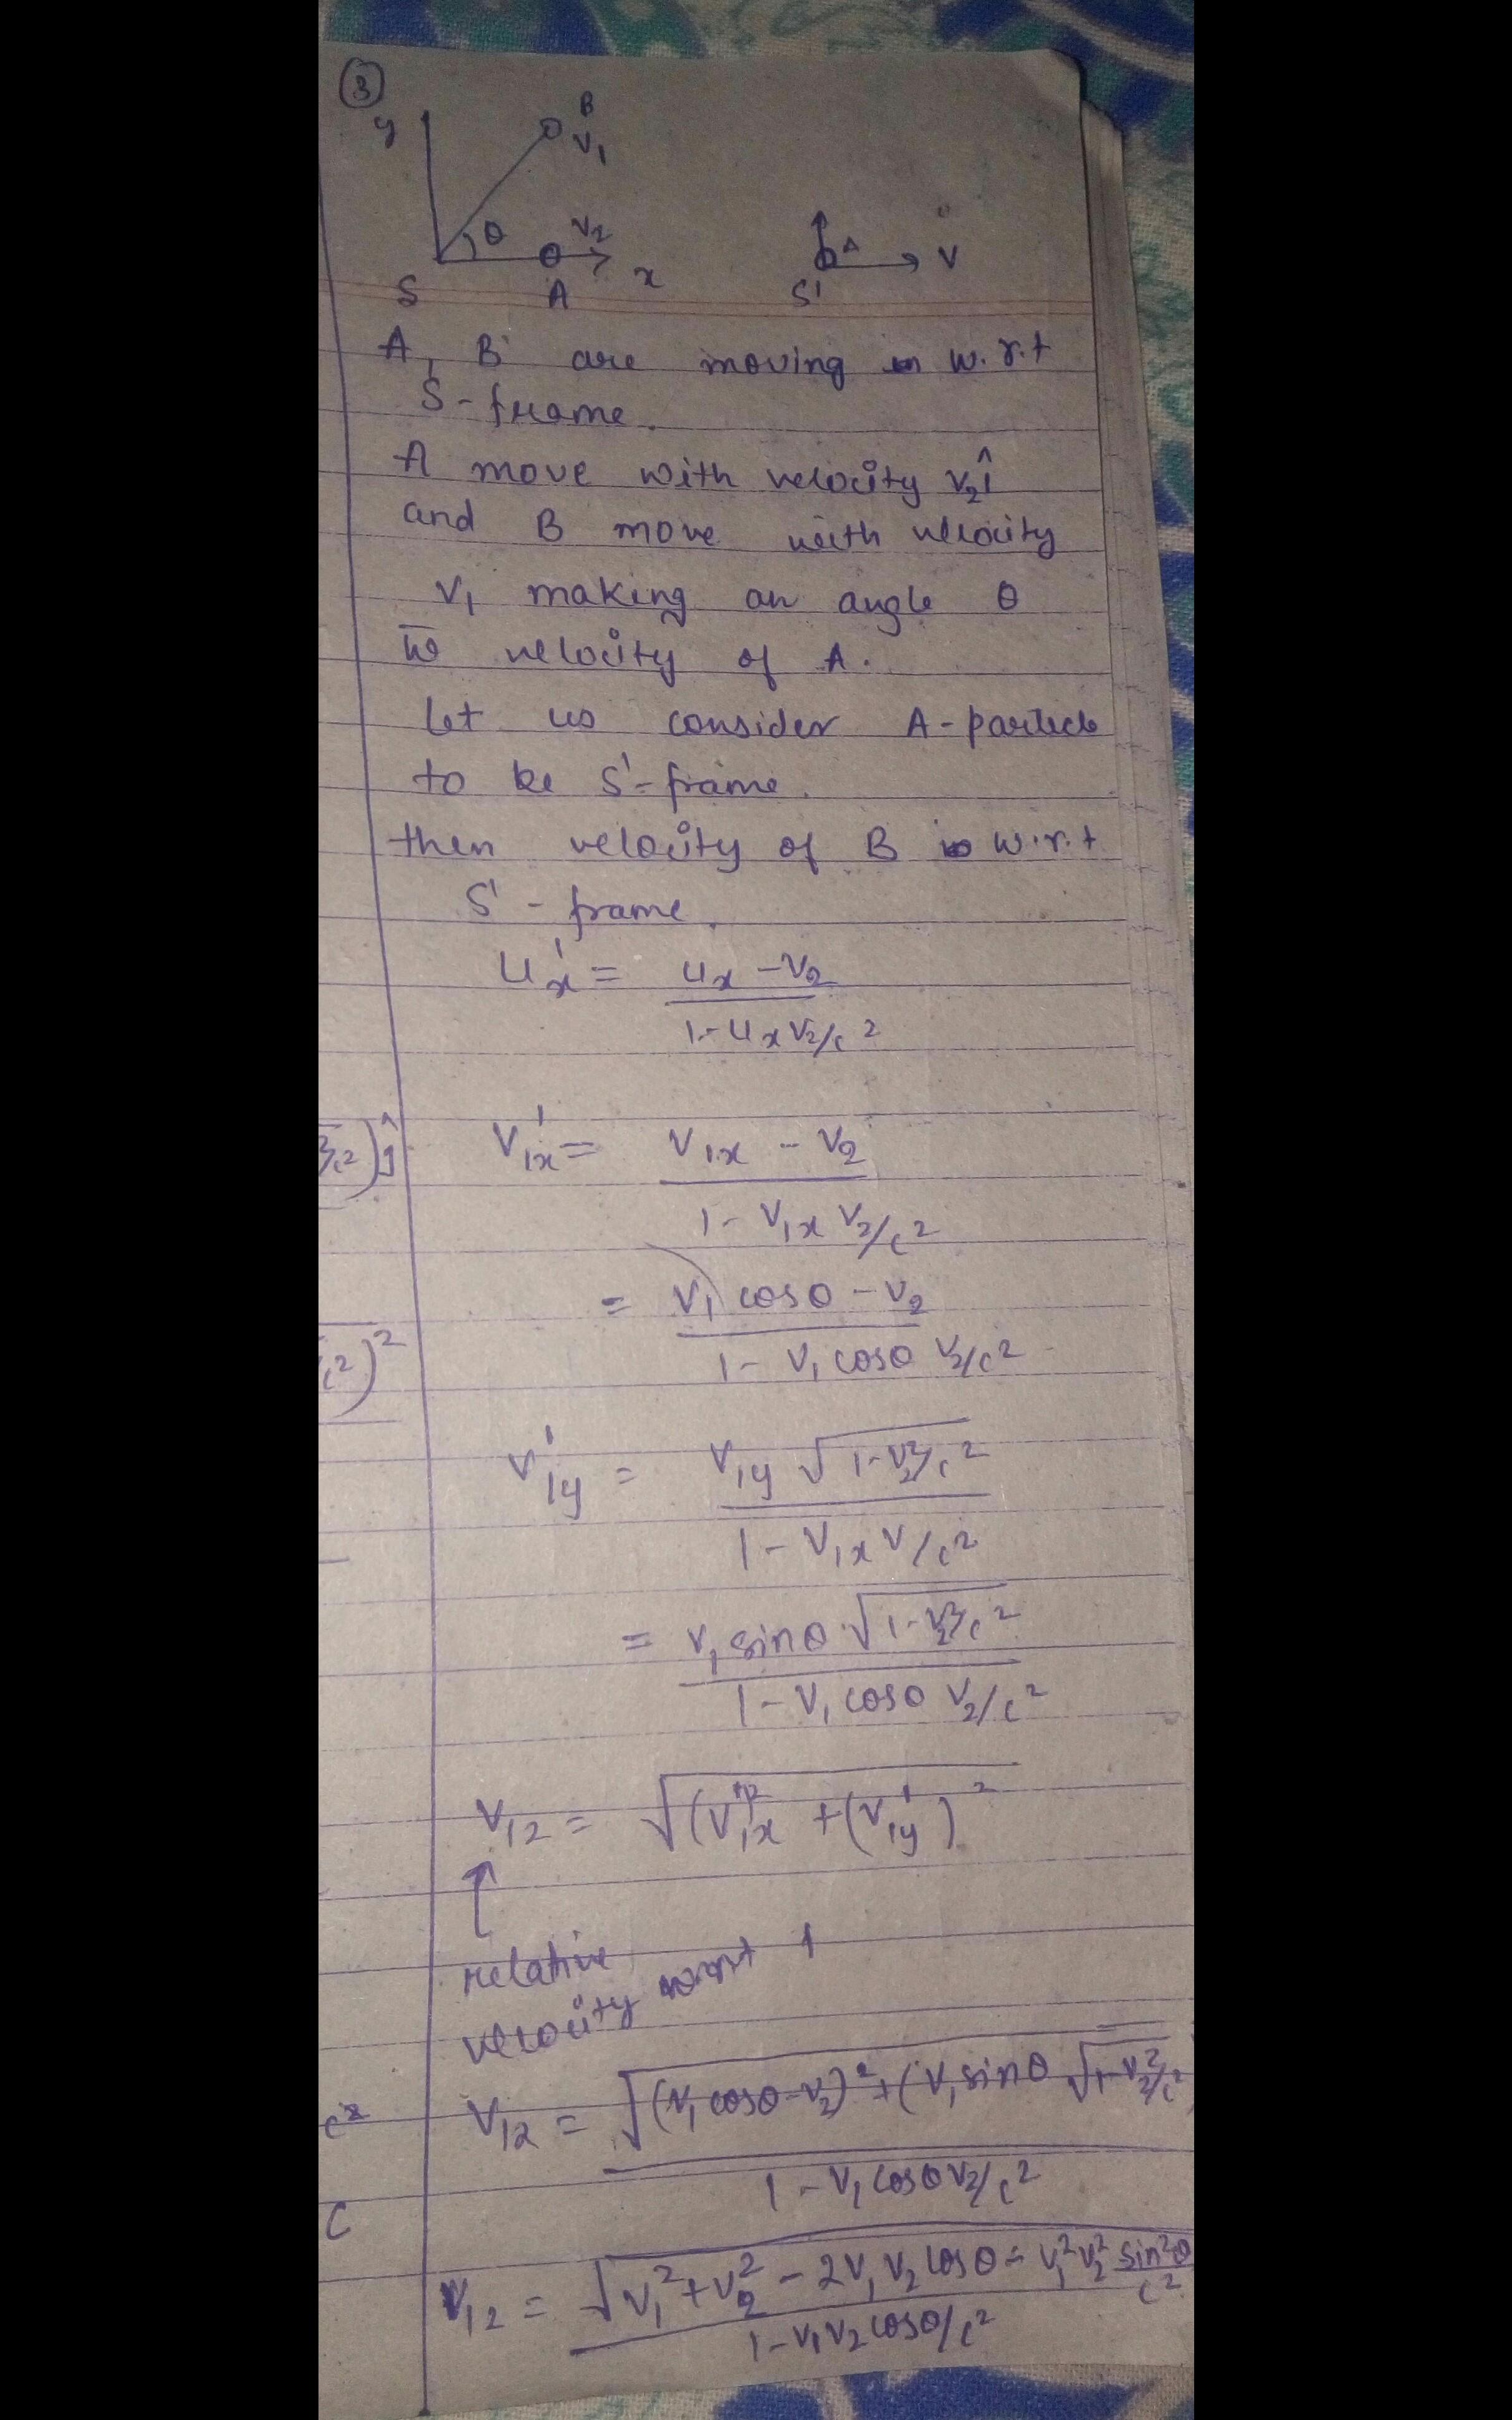 ③
y
B
V₁
θ
V₂
x
S
A
A
V
S'
A, B are moving w.r.t
S-frame.
A move with velocity V₂î
and B move with velocity
V₁ making an angle θ
to velocity of A.
Let us consider A-particle
to be S'-frame.
then velocity of B w.r.t
S'-frame.
uₓ' = (uₓ - V₂) / (1 - uₓV₂/c²)
V₁ₓ' = (V₁ₓ - V₂) / (1 - V₁ₓV₂/c²)
= (V₁ cosθ - V₂) / (1 - V₁ cosθ V₂/c²)
V₁y' = V₁y √(1 - V₂²/c²) / (1 - V₁ₓV/c²)
= V₁ sinθ √(1 - V₂²/c²) / (1 - V₁ cosθ V₂/c²)
V₁₂ = √((V₁ₓ')² + (V₁y')²)
↑
relative
velocity w.r.t 1
V₁₂ = √((V₁ cosθ - V₂)² + (V₁ sinθ √(1 - V₂²/c²) / (1 - V₁ cosθ V₂/c²)
V₁₂ = √(V₁² + V₂² - 2V₁V₂ cosθ - V₁²V₂² sin²θ/c²) / (1 - V₁V₂ cosθ/c²)
c²)ĵ
c²)²
c²
c